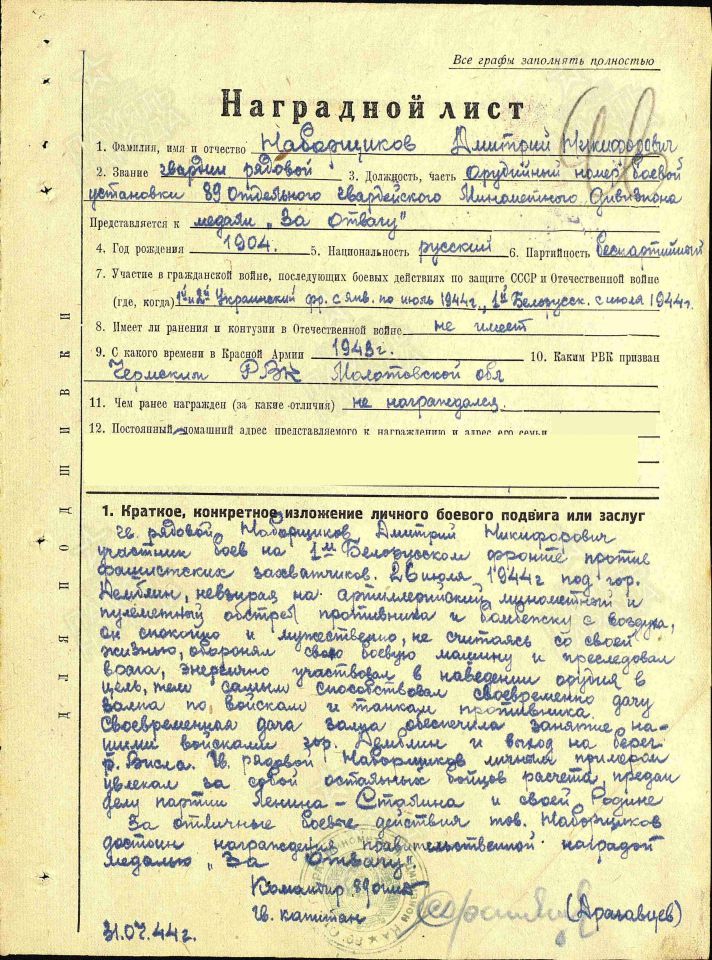 Все графы заполнять полностью
Наградной лист
1. Фамилия, имя и отчество Наборщиков Дмитрий Никифорович
2. Звание гвардии рядовой 3. Должность, часть орудийный номер боевой
установки 89 Отдельного Гвардейского Минометного Дивизиона
Представляется к медали „За Отвагу"
4. Год рождения 1904. 5. Национальность русский 6. Партийность беспартийный
7. Участие в гражданской войне, последующих боевых действиях по защите СССР и Отечественной войне
(где, когда) 1й и 2й Украинский фр. с янв. по июль 1944г., 1й Белорусск. с июля 1944г.
8. Имеет ли ранения и контузии в Отечественной войне не имеет
9. С какого времени в Красной Армии 1943г. 10. Каким РВК призван
Чермским РВК Молотовской обл
11. Чем ранее награжден (за какие отличия) не награждался.
12. Постоянный домашний адрес представляемого к награждению и адрес его семьи
ДЛЯ ПОДШИВКИ
1. Краткое, конкретное изложение личного боевого подвига или заслуг
Гв. рядовой Наборщиков Дмитрий Никифорович
участник боев на 1м Белорусском фронте против
фашистских захватчиков. 26 июля 1944г под гор.
Демблин, невзирая на артиллерийский, минометный и
пулеметный обстрел противника и бомбежку с воздуха,
он спокойно и мужественно, не считаясь со своей
жизнью, оборонял свою боевую машину и преследовал
врага, энергично участвовал в наведении орудия в
цель, тем самым способствовал своевременно дачу
залпа по войскам и танкам противника.
Своевременная дача залпа обеспечила занятие на-
шими войсками гор. Демблин и выход на берег
р. Висла. Гв. рядовой Наборщиков личным примером
увлекал за собой остальных бойцов расчета, предан
делу партии Ленина – Сталина и своей Родине
За отличные боевые действия тов. Наборщиков
достоин награждения правительственной наградой
медалью „За Отвагу".
Командир 89 огмд
Гв. капитан (Драгавцев)
31.07.44г.